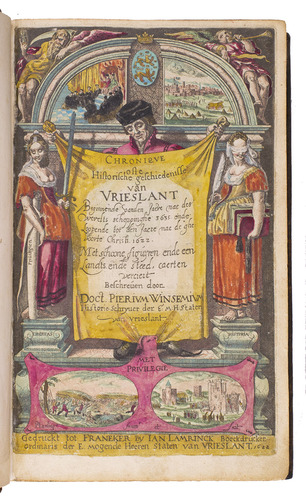 CHRONIQVE
ofte
Historische geschiedenisse
van
VRIESLANT
Beginnende vanden Jaere nae des
Werelts scheppinghe 3635 ende
loopende tot den Jaere nae de geboorte
Christi 1622.
Met schoone figuren ende een
Landts ende Steed caerten
verciert
Beschreven door
Doct. PIERIVM WINSEMIVM
Historie Schryver der E. M. H. Staten
van Vrieslant
MET
PRIVILEGIE
Gedruckt tot FRANEKER by IAN LAMRINCK Boeckdrucker
ordinaris der E. Mogende Heeren Staten van VRIESLANT. 1622